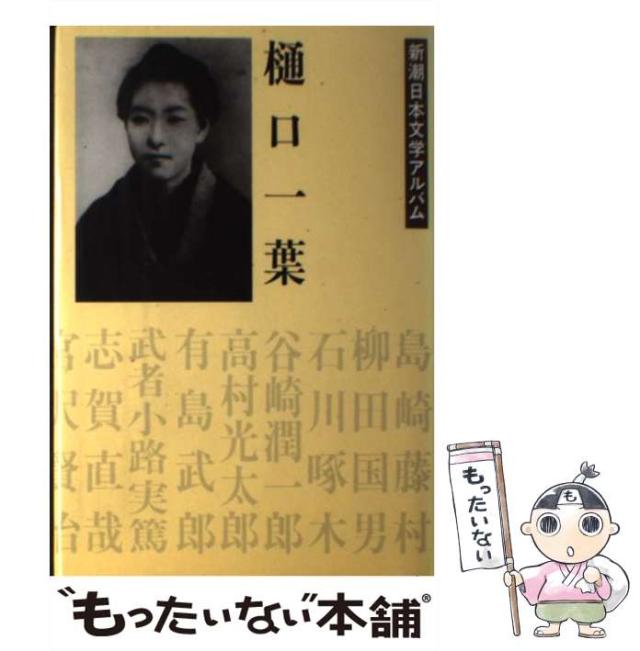 新潮日本文学アルバム
樋口一葉
島崎藤村
柳田国男
石川啄木
谷崎潤一郎
高村光太郎
有島武郎
武者小路実篤
志賀直哉
宮沢賢治
もったいない
も
"もったいない"本舗®